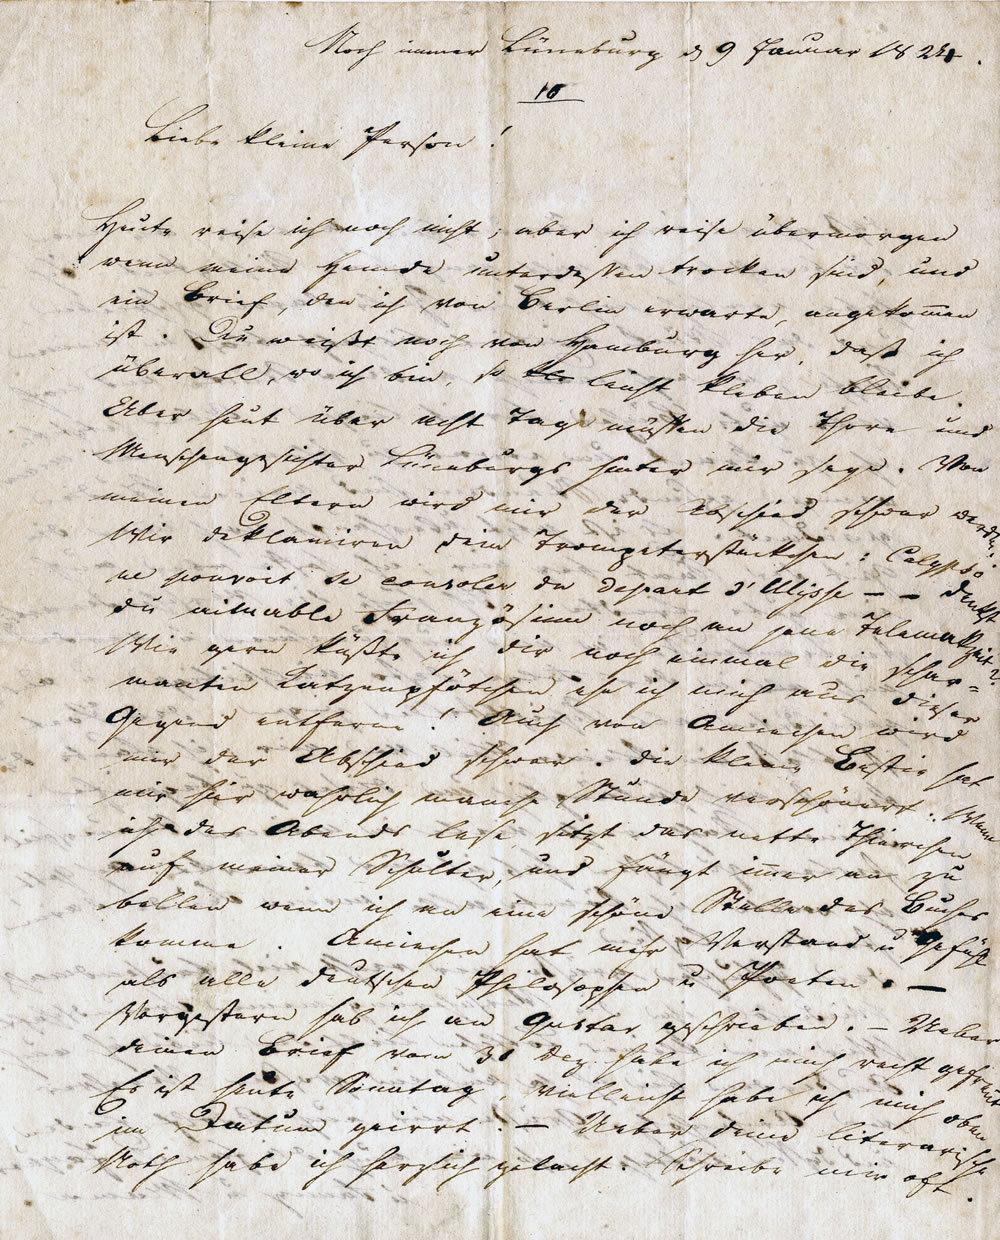 Noch immer Lüneburg d 9 Januar 1824.
10
Liebe kleine Person!
Heute reise ich noch nicht; aber ich reise übermorgen
wenn meine Hemde unterdessen trocken sind, und
ein Brief, den ich von Berlin erwarte, angekommen
ist. Du weißt noch von Hamburg her, daß ich
überall, wo ich bin, so leicht kleben bleibe.
Aber heut über acht Tag müssen die Thore und
Menschengesichter Lüneburgs hinter mir seyn. Von
meinen Eltern wird mir der Abschied schwer werden.
Wir deklamiren dein Trompeterstückchen: Calypso
ne pouvoit se consoler du depart d'Ulysse — — denkst
du aimable Französinn noch an jene Telemakzeit?
Wie gern küßte ich dir noch einmal die schar=
manten Katzenpfötchen ehe ich mich aus dieser
Gegend entferne! Auch von Amiechen wird
mir der Abschied schwer. Die kleine Bestie hat
mir hier wahrlich manche Stunde verschönert. Wenn
ich des Abends lese sitzt das nette Thierchen
auf meiner Schulter, und fängt immer an zu
bellen wenn ich an eine schöne Stelle des Buches
komme. Amiechen hat mehr Verstand u Gefühl
als alle deutschen Philosophen u Poeten. —
Vorgestern hab ich an Gustav geschrieben. — Ueber
deinen Brief vom 31 Dez. habe ich mich recht gefreut
Es ist heute Sonntag, vielleicht habe ich mich oben
im Datum geirrt. — Ueber deine literarische
Noth habe ich herzlich gelacht. Schreibe mir oft.